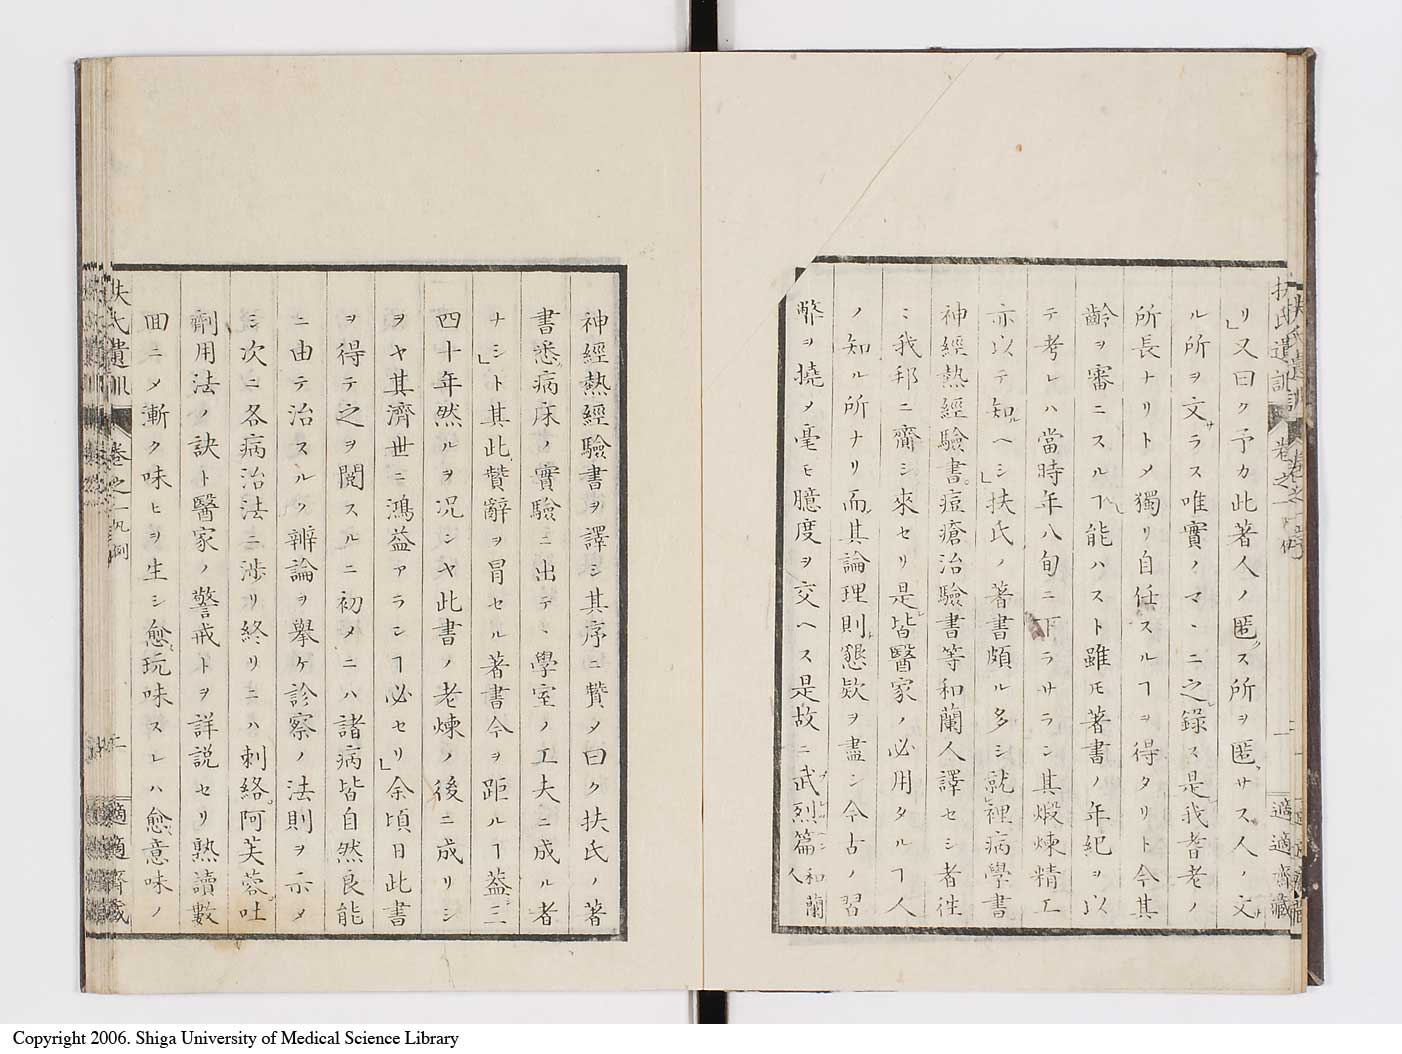 リ」又曰ク予カ此著人ノ匿ス所ヲ匿サス人ノ文
ル所ヲ文ラス唯實ノマヽニ之ヲ錄ス是我耆老ノ
所長ナリトメ獨リ自任スルヿヲ得タリト今其
齡ヲ審ニスルヿ能ハスト雖モ著書ノ年紀ヲ以
テ考レハ當時年八旬ニ下ラサラン其煅煉精工
亦以テ知ルヘシ」扶氏ノ著書頗ル多シ就裡病學書
神經熱經驗書痘瘡治驗書等和蘭人譯セシ者徃
々我邦ニ齎シ來セリ是レ皆醫家ノ必用タルヿ人
ノ知ル所ナリ而其論理則懇欵ヲ盡シ今古ノ習
弊ヲ撓メ毫モ臆度ヲ交ヘス是故ニ武烈篇和蘭人
神經熱經驗書ヲ譯シ其序ニ贊メ曰ク扶氏ノ著
書悉ク病床ノ實驗ニ出テヽ學室ノ工夫ニ成ル者
ナシ」ト其此贊辭ヲ冒セル著書今ヲ距ルヿ葢シ三
四十年然ルヲ况ンヤ此書ノ老煉ノ後ニ成リシ
ヲヤ其濟世ニ鴻益アランヿ必セリ」余頃日此書
ヲ得テ之ヲ閱スルニ初メニハ諸病皆自然良能
ニ由テ治スルノ辨論ヲ擧ケ診察ノ法則ヲ示メ
シ次ニ各病治法ニ渉リ終リニハ刺絡阿芙蓉吐
劑用法ノ訣ト醫家ノ警戒トヲ詳説セリ熟讀數
回ニメ漸ク味ヒヲ生シ愈玩味スレハ愈意味ノ
扶氏遺訓
卷之一凡例
適適齋藏
Copyright 2006. Shiga University of Medical Science Library